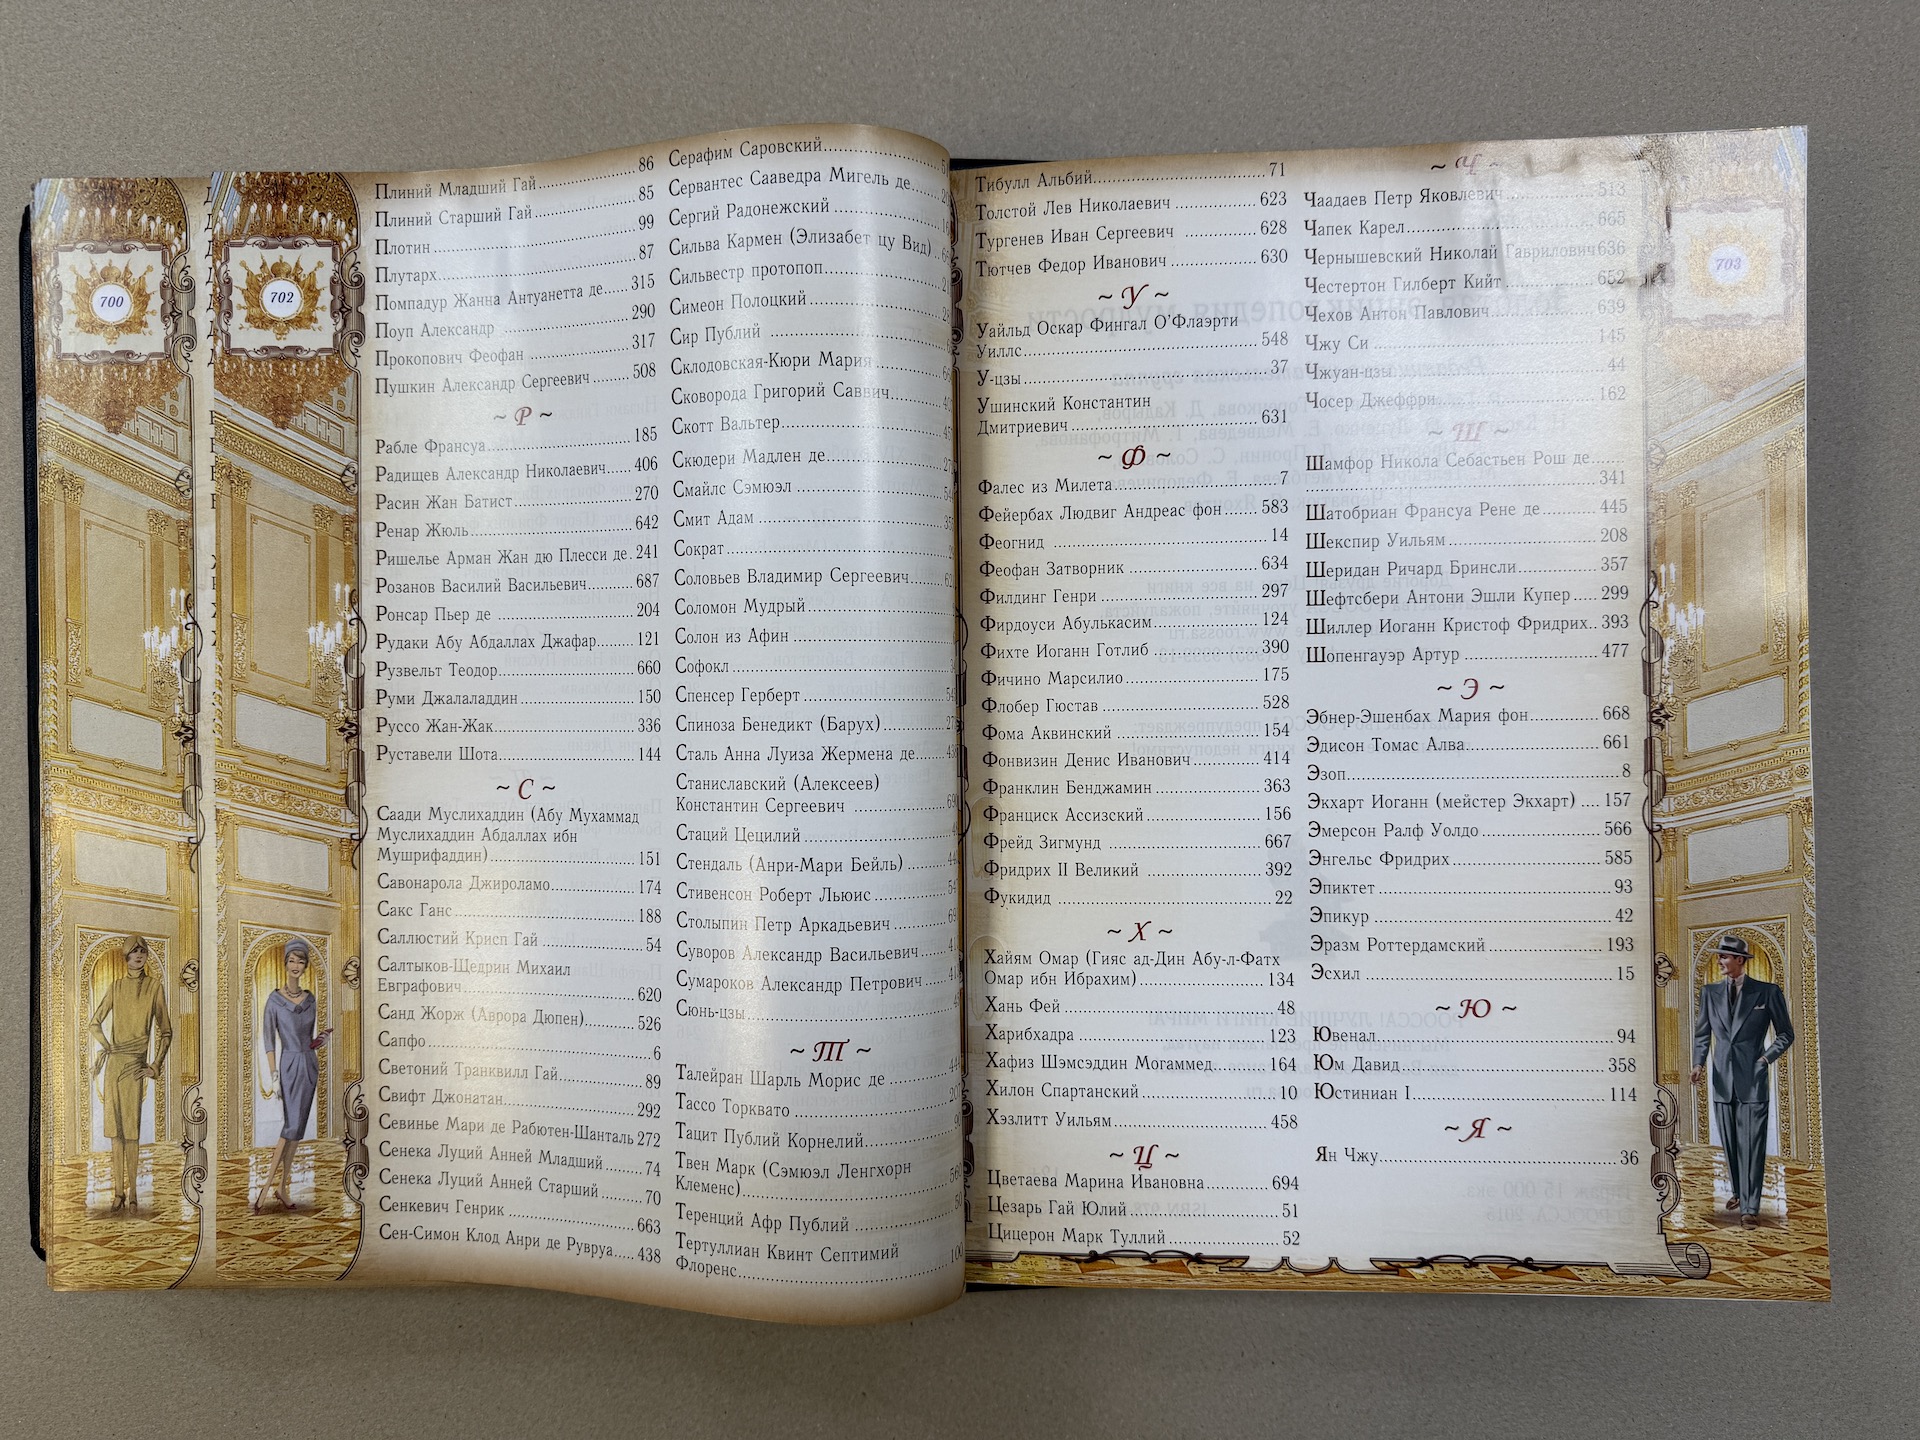 700
702
Плиний Младший Гай 86
Плиний Старший Гай 85
Плотин 99
Плутарх 87
Помпадур Жанна Антуанетта де 315
Поуп Александр 290
Прокопович Феофан 317
Пушкин Александр Сергеевич 508
~ Р ~
Рабле Франсуа 185
Радищев Александр Николаевич 406
Расин Жан Батист 270
Ренар Жюль 642
Ришелье Арман Жан дю Плесси де. 241
Розанов Василий Васильевич 687
Ронсар Пьер де 204
Рудаки Абу Абдаллах Джафар 121
Рузвельт Теодор 660
Руми Джалаладдин 150
Руссо Жан-Жак 336
Руставели Шота 144
~ С ~
Саади Муслихаддин (Абу Мухаммад
Муслихаддин Абдаллах ибн
Мушрифаддин) 151
Савонарола Джироламо 174
Сакс Ганс 188
Саллюстий Крисп Гай 54
Салтыков-Щедрин Михаил
Евграфович 620
Санд Жорж (Аврора Дюпен) 526
Сапфо 6
Светоний Транквилл Гай 89
Свифт Джонатан 292
Севинье Мари де Рабютен-Шанталь 272
Сенека Луций Анней Младший 74
Сенека Луций Анней Старший 70
Сенкевич Генрик 663
Сен-Симон Клод Анри де Рувруа 438
Серафим Саровский
Сервантес Сааведра Мигель де
Сергий Радонежский
Сильва Кармен (Элизабет цу Вид)
Сильвестр протопоп
Симеон Полоцкий
Сир Публий
Склодовская-Кюри Мария
Сковорода Григорий Саввич
Скотт Вальтер
Скюдери Мадлен де
Смайлс Сэмюэл
Смит Адам
Сократ
Соловьев Владимир Сергеевич
Соломон Мудрый
Солон из Афин
Софокл
Спенсер Герберт
Спиноза Бенедикт (Барух)
Сталь Анна Луиза Жермена де
Станиславский (Алексеев)
Константин Сергеевич
Стаций Цецилий
Стендаль (Анри-Мари Бейль)
Стивенсон Роберт Льюис
Столыпин Петр Аркадьевич
Суворов Александр Васильевич
Сумароков Александр Петрович
Сюнь-цзы
~ Т ~
Талейран Шарль Морис де
Тассо Торквато
Тацит Публий Корнелий
Твен Марк (Сэмюэл Ленгхорн
Клеменс)
Теренций Афр Публий
Тертуллиан Квинт Септимий
Флоренс 100
Тибулл Альбий 71
Толстой Лев Николаевич 623
Тургенев Иван Сергеевич 628
Тютчев Федор Иванович 630
~ У ~
Уайльд Оскар Фингал О’Флаэрти
Уиллс 548
У-цзы 37
Ушинский Константин
Дмитриевич 631
~ Ф ~
Фалес из Милета 7
Фейербах Людвиг Андреас фон 583
Феогнид 14
Феофан Затворник 634
Филдинг Генри 297
Фирдоуси Абулькасим 124
Фихте Иоганн Готлиб 390
Фичино Марсилио 175
Флобер Гюстав 528
Фома Аквинский 154
Фонвизин Денис Иванович 414
Франклин Бенджамин 363
Франциск Ассизский 156
Фрейд Зигмунд 667
Фридрих II Великий 392
Фукидид 22
~ Х ~
Хайям Омар (Гияс ад-Дин Абу-л-Фатх
Омар ибн Ибрахим) 134
Хань Фей 48
Харибхадра 123
Хафиз Шэмсэддин Могаммед 164
Хилон Спартанский 10
Хэзлитт Уильям 458
~ Ц ~
Цветаева Марина Ивановна 694
Цезарь Гай Юлий 51
Цицерон Марк Туллий 52
~ Ч ~
Чаадаев Петр Яковлевич 513
Чапек Карел 665
Чернышевский Николай Гаврилович 636
Честертон Гилберт Кийт 652
Чехов Антон Павлович 639
Чжу Си 145
Чжуан-цзы 44
Чосер Джеффри 162
~ Ш ~
Шамфор Никола Себастьен Рош де
341
Шатобриан Франсуа Рене де 445
Шекспир Уильям 208
Шеридан Ричард Бринсли 357
Шефтсбери Антони Эшли Купер 299
Шиллер Иоганн Кристоф Фридрих 393
Шопенгауэр Артур 477
~ Э ~
Эбнер-Эшенбах Мария фон 668
Эдисон Томас Алва 661
Эзоп 8
Экхарт Иоганн (мейстер Экхарт) 157
Эмерсон Ралф Уолдо 566
Энгельс Фридрих 585
Эпиктет 93
Эпикур 42
Эразм Роттердамский 193
Эсхил 15
~ Ю ~
Ювенал 94
Юм Давид 358
Юстиниан I 114
~ Я ~
Ян Чжу 36
703